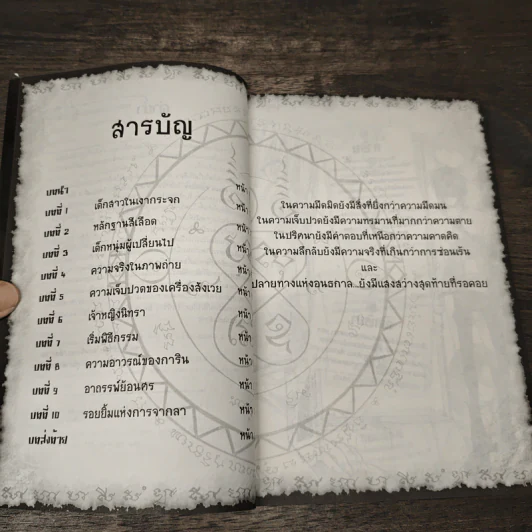 สารบัญ
บทนำ หน้า
บทที่ 1 เด็กสาวในเงากระจก หน้า
บทที่ 2 หลักฐานสีเลือด หน้า
บทที่ 3 เด็กหนุ่มผู้เปลี่ยนไป หน้า
บทที่ 4 ความจริงในภาพถ่าย หน้า
บทที่ 5 ความเจ็บปวดของเครื่องสังเวย หน้า
บทที่ 6 เจ้าหญิงนิทรา หน้า
บทที่ 7 เริ่มพิธีกรรม หน้า
บทที่ 8 ความอาวรณ์ของการิน หน้า
บทที่ 9 อาถรรพ์ย้อนศร หน้า
บทที่ 10 รอยยิ้มแห่งการจากลา หน้า
บทส่งท้าย หน้า
ในความมืดมิดยังมีสิ่งที่ยิ่งกว่าความมืดมน
ในความเจ็บปวดยังมีความทรมานที่มากกว่าความตาย
ในปริศนายังมีคำตอบที่เหนือกว่าความคาดคิด
ในความลึกลับยังมีความจริงที่เกินกว่าการซ่อนเร้น
และ
ปลายทางแห่งอนธกาล...ยังมีแสงสว่างสุดท้ายที่รอคอย